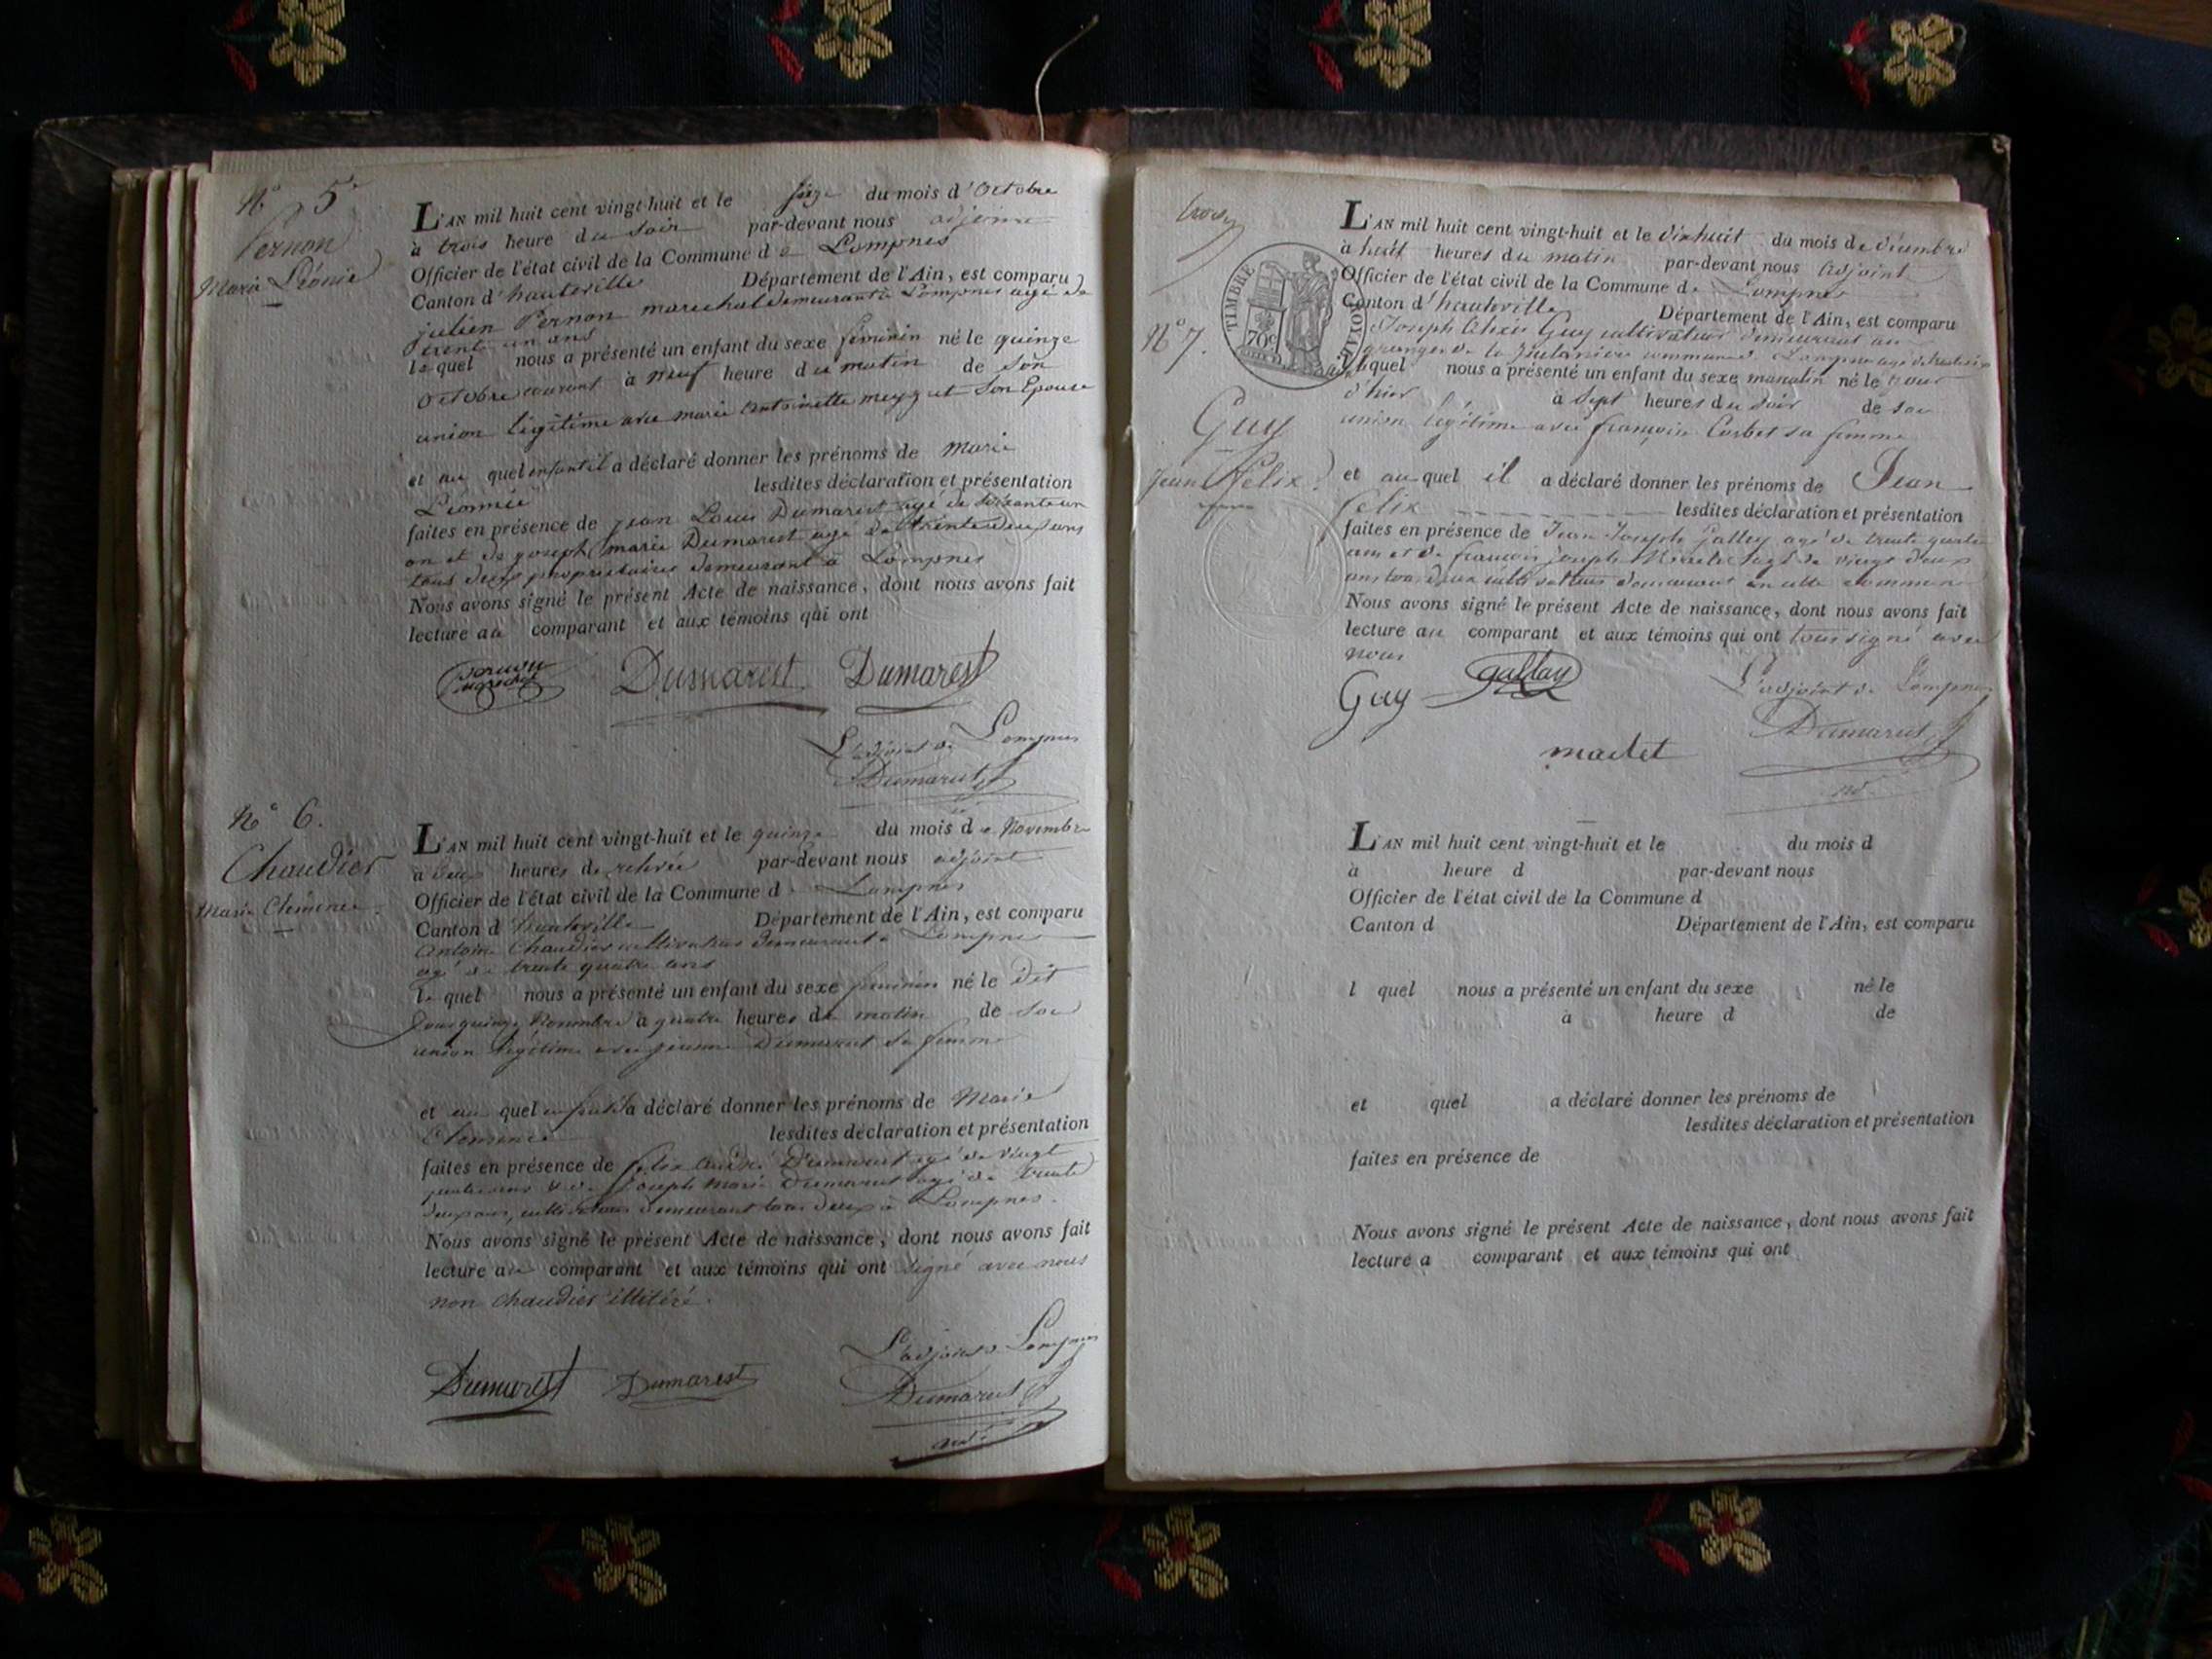 N° 5
Pernon
Marie Léonie
L'AN mil huit cent vingt-huit et le seize du mois d'Octobre
à trois heure du soir par-devant nous adjoint
Officier de l'état civil de la Commune de Lompnes
Canton d'hauteville Département de l'Ain, est comparu
julien Pernon marechal demeurant à Lompnes agé de
trente un ans
lequel nous a présenté un enfant du sexe féminin né le quinze
Octobre courant à neuf heure du matin de son
union légitime avec marie antoinette meyget son Epouse
et au quel enfant il a déclaré donner les prénoms de marie
Léonnie lesdites déclaration et présentation
faites en présence de jean Louis Dumarest agé de soixante un
an et de joseph marie Dumarest agé de trente deux ans
tous deux proprietaires demeurant à Lompnes
Nous avons signé le présent Acte de naissance, dont nous avons fait
lecture au comparant et aux témoins qui ont
Pernon
marechal
Dumarest Dumarest
L'adjoint de Lompnes
Dumarest
N° 6.
Chaudier
Marie Clémence
L'AN mil huit cent vingt-huit et le quinze du mois de Novembre
à deux heures de relevée par-devant nous adjoint
Officier de l'état civil de la Commune de Lompnes
Canton d'hauteville Département de l'Ain, est comparu
Antoine Chaudier cultivateur demeurant à Lompnes
agé de trente quatre ans
le quel nous a présenté un enfant du sexe féminin né le dit
jour quinze Novembre à quatre heures du matin de son
union légitime avec jeanne Dumarest sa femme
et au quel enfant il a déclaré donner les prénoms de Marie
Clémence lesdites déclaration et présentation
faites en présence de felix André Dumarest agé de vingt
quatre ans & de Joseph Marie Dumarest agé de trente
deux ans, cultivateurs demeurant tous deux à Lompnes.
Nous avons signé le présent Acte de naissance, dont nous avons fait
lecture au comparant et aux témoins qui ont signé avec nous
non Chaudier illitéré.
Dumarest Dumarest
L'adjoint de Lompnes
Dumarest
adj.
TIMBRE ROYALE
70c
N° 7.
Guy
Jean Félix.
L'AN mil huit cent vingt-huit et le dixhuit du mois de décembre
à huit heures du matin par-devant nous Adjoint
Officier de l'état civil de la Commune de Lompnes
Canton d'hauteville Département de l'Ain, est comparu
Joseph Alexis Guy cultivateur demeurant au
granges de la commune de Lompnes agé de
lequel nous a présenté un enfant du sexe masculin né le jour
d'hier à Sept heures du soir de son
union légitime avec françoise Corbet sa femme
et au quel il a déclaré donner les prénoms de Jean
felix lesdites déclaration et présentation
faites en présence de Jean Joseph Galley agé de trente quatre
ans et de françois joseph agé de vingt deux
ans tous deux cultivateurs demeurant en cette commune
Nous avons signé le présent Acte de naissance, dont nous avons fait
lecture au comparant et aux témoins qui ont tous signé avec
nous
Guy gallay
L'adjoint de Lompnes
Dumarest
L'AN mil huit cent vingt-huit et le du mois d
à heure d par-devant nous
Officier de l'état civil de la Commune d
Canton d Département de l'Ain, est comparu
l quel nous a présenté un enfant du sexe né le
à heure d de
et quel a déclaré donner les prénoms de
lesdites déclaration et présentation
faites en présence de
Nous avons signé le présent Acte de naissance, dont nous avons fait
lecture a comparant et aux témoins qui ont